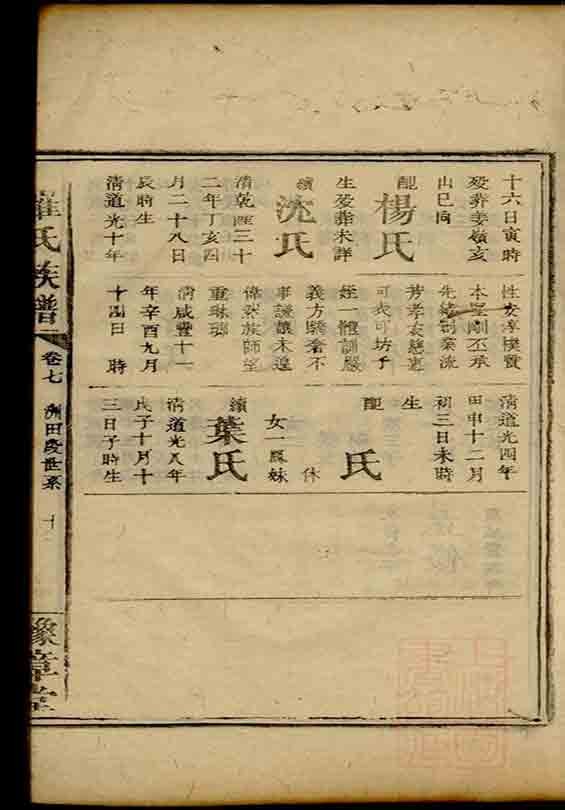 十六日寅時
歿葬妻嶺亥
山巳向
配楊氏
生歿葬未詳
續沈氏
清乾隆三十
二年丁亥四
月二十八日
辰時生
清道光十年
性安淳樸質
本堅剛丕承
先緒創業流
芳孝友慈惠
可衣可坊子
姪一體訓嚴
義方驕奢不
事謙讓未遑
偉哉族師望
重琳瑯
清咸豐十一
年辛酉九月
十四日 時
清道光四年
甲申十二月
初三日未時
生
配 氏
休
女一鳳妹
續葉氏
清道光八年
戊子十月十
三日子時生
羅氏族譜
卷七
洲田慶世系
豫章堂